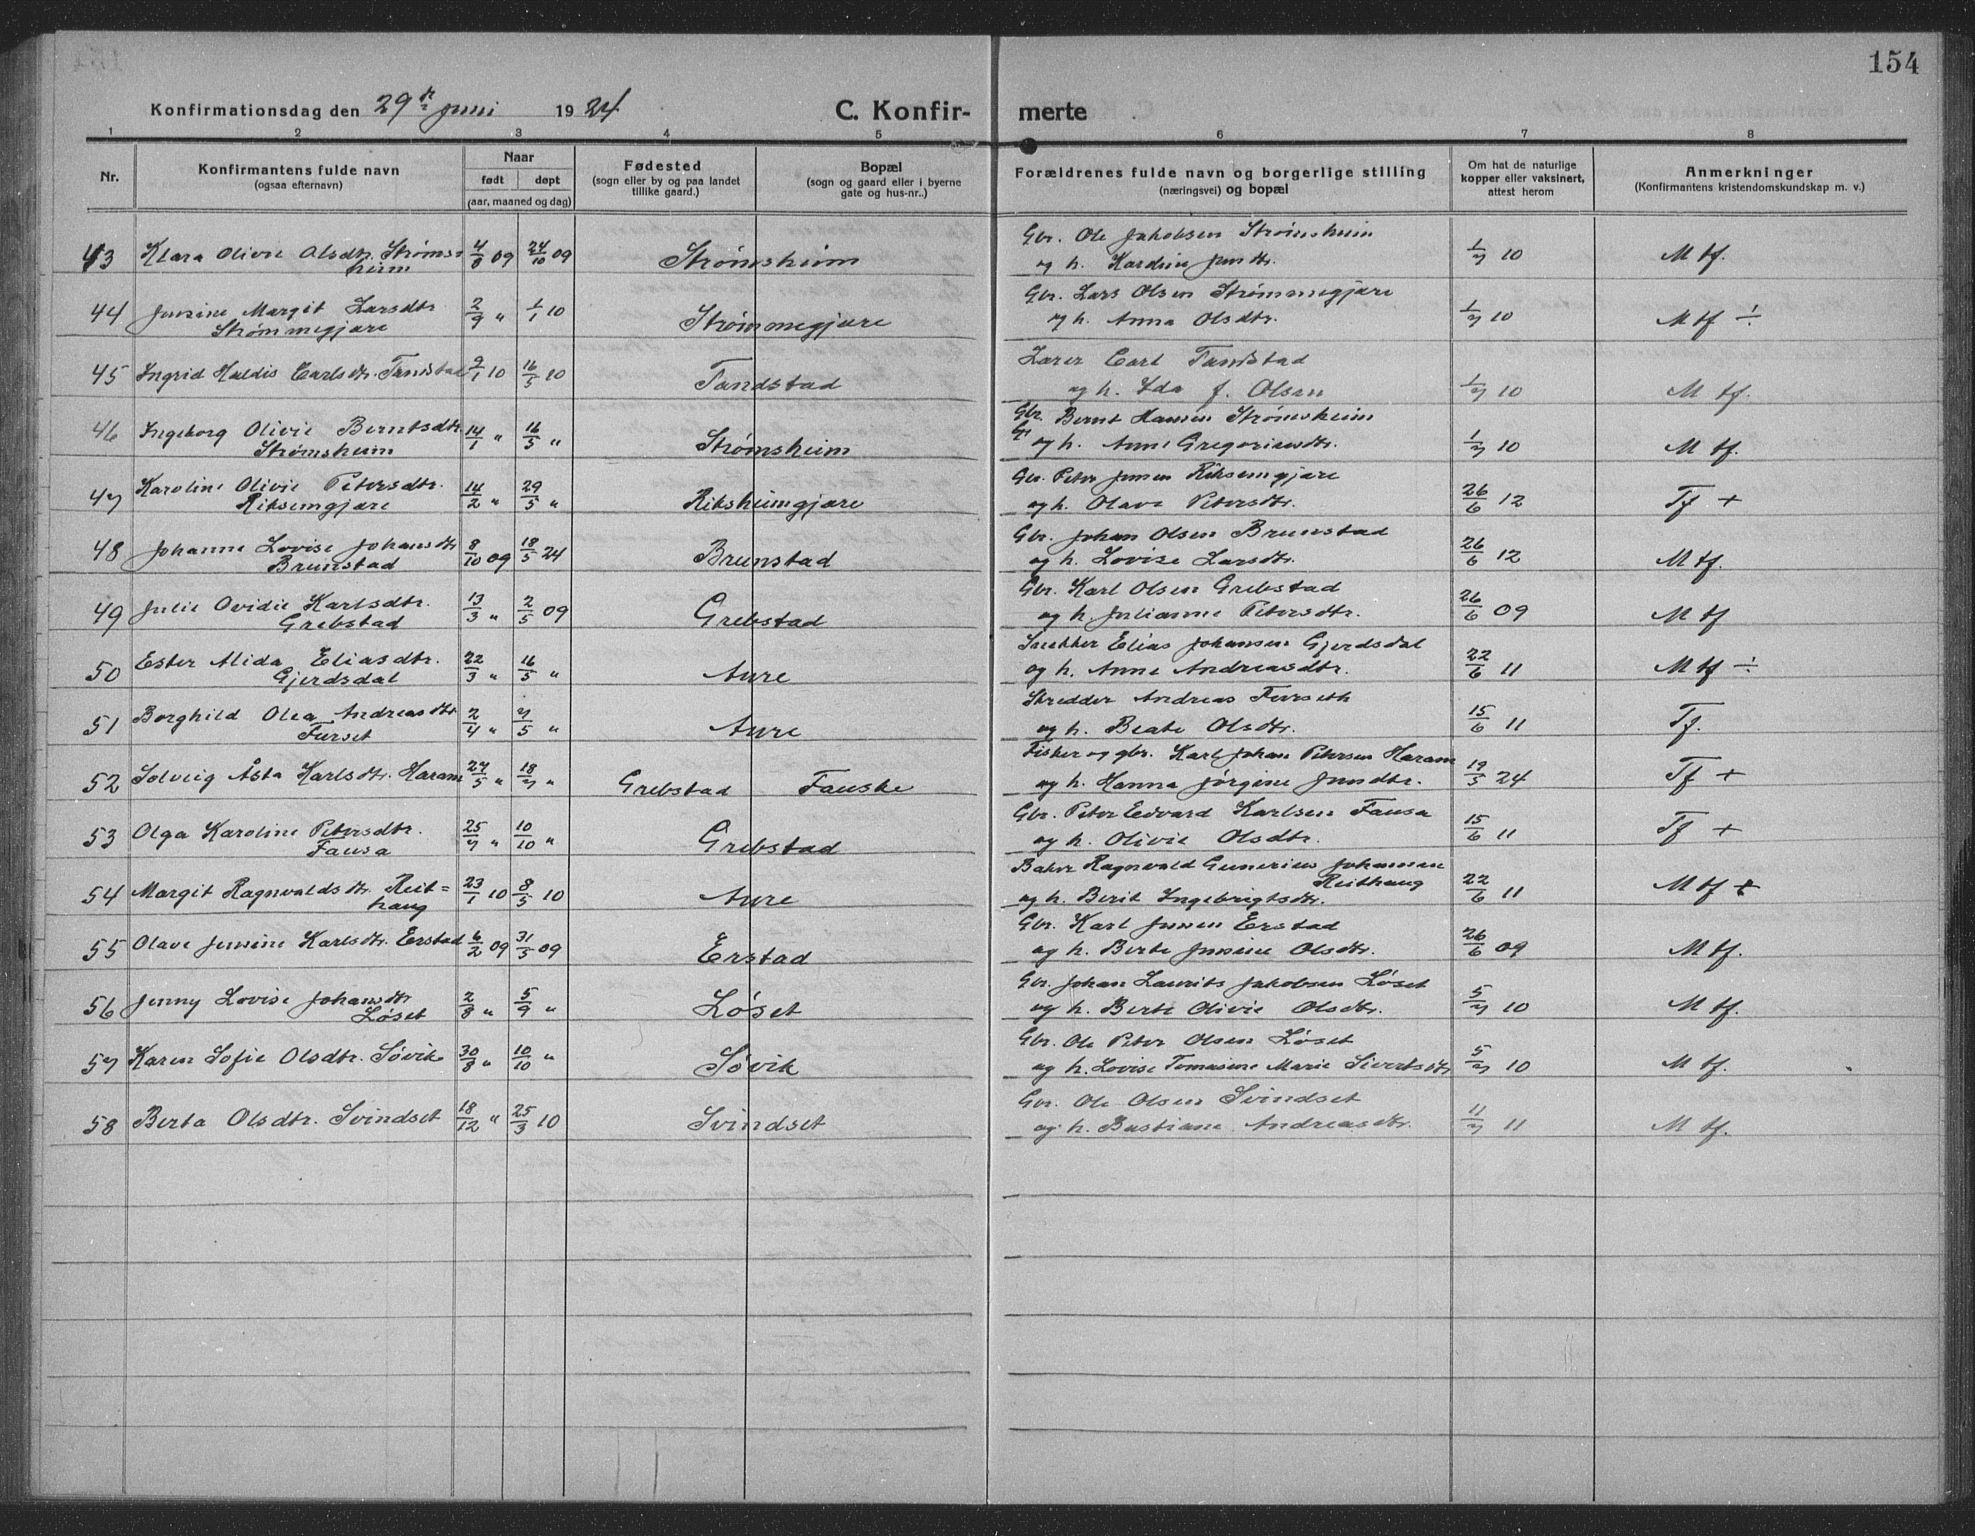 154
Konfirmationsdag den 29de juni 1924
C. Konfir- merte
1 2 3 4 5 6 7 8
Nr.
Konfirmantens fulde navn
(ogsaa efternavn)
Naar
født døpt
(aar, maaned og dag)
Fødested
(sogn eller by og paa landet
tillike gaard.)
Bopæl
(sogn og gaard eller i byerne
gate og hus-nr..)
Forældrenes fulde navn og borgerlige stilling
(næringsvei) og bopæl
Om hat de naturlige
kopper eller vaksinert,
attest herom
Anmerkninger
(Konfirmantens kristendomskundskap m. v.)
43 Klara Olivie Olsdtr. Strøms- 4/8 09 24/10 09 Strømsheim Gbr. Ole Jakobsen Strømsheim 1/7 10 M tf.
heim og h. Kardine Jensdtr.
44 Jensine Margit Larsdtr. 2/9 " 1/1 10 Strømmegjære Gbr. Lars Olsen Strømmegjære 1/7 10 M tf ÷
Strømmegjære og h. Anna Olsdtr.
45 Ingrid Haldis Carlsdtr. Tandstad 9/1 10 16/5 10 Tandstad Lærer Carl Tandstad 1/7 10 M tf.
og h. Ida J. Olsen
46 Ingeborg Olivie Berntsdtr. 14/1 " 16/5 " Strømsheim Gbr. Bernt Hansen Strømsheim 1/7 10 M tf.
Strømsheim og h. Anne Gregoriusdtr.
47 Karoline Olivie Petersdtr. 14/2 " 29/5 " Riksheimgjære Gbr. Peter Jensen Riksemgjære 26/6 12 Tf +
Riksemgjære og h. Olave Petersdtr.
48 Johanne Lovise Johansdtr. 8/10 09 18/5 24 Brunstad Gbr. Johan Olsen Brunstad 26/6 12 M tf.
Brunstad og h. Lovise Larsdtr.
49 Julie Ovidie Karlsdtr. 13/3 " 2/5 09 Grebstad Gbr. Karl Olsen Grebstad 26/6 09 M tf
Grebstad og h. Julianne Petersdtr.
50 Ester Alida Eliasdtr. 22/3 " 16/5 " Aure Snekker Elias Johansen Gjerdsdal 22/6 11 M tf ÷
Gjerdsdal og h. Anne Andreasdtr.
51 Borghild Olea Andreasdtr. 2/4 " 7/5 " Aure Skredder Andreas Furseth 15/6 11 Tf.
Furset og h. Beate Olsdtr.
52 Solveig Åsta Karlsdtr. Haram 27/5 " 18/7 " Grebstad Fauske Fisker og gbr. Karl Johan Petersen Haram 19/5 24 Tf +
og h. Hanna Jørgine Jensdtr.
53 Olga Karoline Petersdtr. 25/7 " 10/10 " Grebstad Gbr. Peter Edvard Karlsen Fausa 15/6 11 Tf +
Fausa og h. Olivie Olsdtr.
54 Margit Ragnvaldsdtr. Reit= 23/1 10 8/5 10 Aure Baker Ragnvald Gunerius Johannsen 22/6 11 M tf +
haug Reithaug
og h. Berit Ingebrigtsdtr.
55 Olave Jensine Karlsdtr. Erstad 6/2 09 31/5 09 Erstad Gbr. Karl Jensen Erstad 26/6 09 M tf.
og h. Berte Jensine Olsdtr.
56 Jenny Lovise Johansdtr. 2/8 " 5/9 " Løset Gbr. Johan Laurits Jakobsen Løset 5/7 10 M tf.
Løset og h. Berte Olivie Olsdtr.
57 Karen Sofie Olsdtr. Søvik 30/8 " 10/10 " Søvik Gbr. Ole Peter Olsen Løset 5/7 10 M tf.
og h. Lovise Tomasine Marie Sivertsdtr.
58 Berta Olsdtr. Svindset 18/12 " 25/3 10 Svindset Gbr. Ole Olsen Svindset 11/7 11 M tf.
og h. Bastiane Andreasdtr.